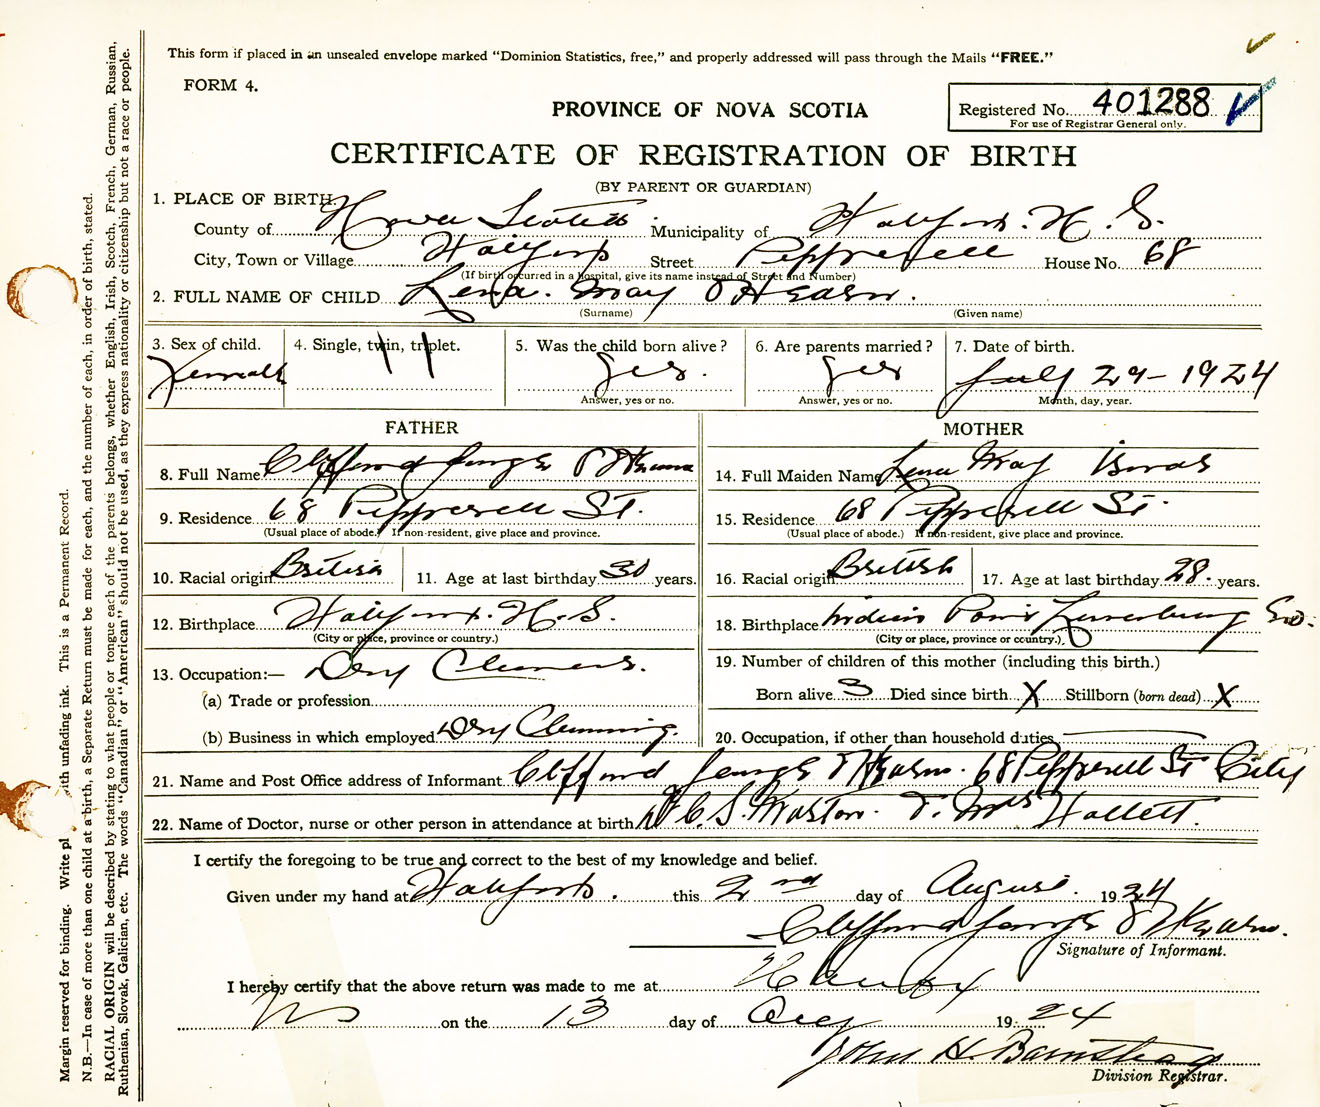 This form if placed in an unsealed envelope marked "Dominion Statistics, free," and properly addressed will pass through the Mails "FREE."
FORM 4.
Registered No. 401288
For use of Registrar General only.
PROVINCE OF NOVA SCOTIA
CERTIFICATE OF REGISTRATION OF BIRTH
(BY PARENT OR GUARDIAN)
1. PLACE OF BIRTH
County of Nova Scotia Municipality of N. S.
City, Town or Village Street Pepperell House No. 68
(If birth occurred in a Hospital, give its name instead of Street and Number)
2. FULL NAME OF CHILD Lena. May O'Hearn.
(Surname) (Given name)
3. Sex of child. 4. Single, twin, triplet. 5. Was the child born alive? 6. Are parents married? 7. Date of birth.
yes. yes July 29-1924
Answer, yes or no. Answer, yes or no. Month, day, year.
FATHER MOTHER
8. Full Name Clifford George O'Hearn 14. Full Maiden Name Lena May
9. Residence 68 Pepperell St. 15. Residence 68 Pepperell St.
(Usual place of abode.) If non-resident, give place and province. (Usual place of abode.) If non-resident, give place and province.
10. Racial origin British 11. Age at last birthday 30 years. 16. Racial origin British 17. Age at last birthday 28. years.
12. Birthplace N.S. 18. Birthplace Lunenburg Co.
(City or place, province or country.) (City or place, province or country.)
13. Occupation:— Dry 19. Number of children of this mother (including this birth.)
(a) Trade or profession Born alive 3 Died since birth X Stillborn (born dead) X
(b) Business in which employed Dry 20. Occupation, if other than household duties
21. Name and Post Office address of Informant Clifford George O'Hearn. 68 Pepperell St City
22. Name of Doctor, nurse or other person in attendance at birth C. S. Marston. Mrs Hallett.
I certify the foregoing to be true and correct to the best of my knowledge and belief.
Given under my hand at this 2nd day of August. 1924
Clifford George O'Hearn.
Signature of Informant.
I hereby certify that the above return was made to me at Halifax
NS on the 13 day of Aug 19 24
John H. Barnstead
Division Registrar.
Margin reserved for binding. Write pl with unfading ink. This is a Permanent Record.
N.B.—In case of more than one child at a birth, a Separate Return must be made for each, and the number of each, in order of birth, stated.
RACIAL ORIGIN will be described by stating to what people or tongue each of the parents belongs, whether English, Irish, Scotch, French, German, Russian,
Ruthenian, Slovak, Galician, etc. The words "Canadian" or "American" should not be used, as they express nationality or citizenship but not a race or people.